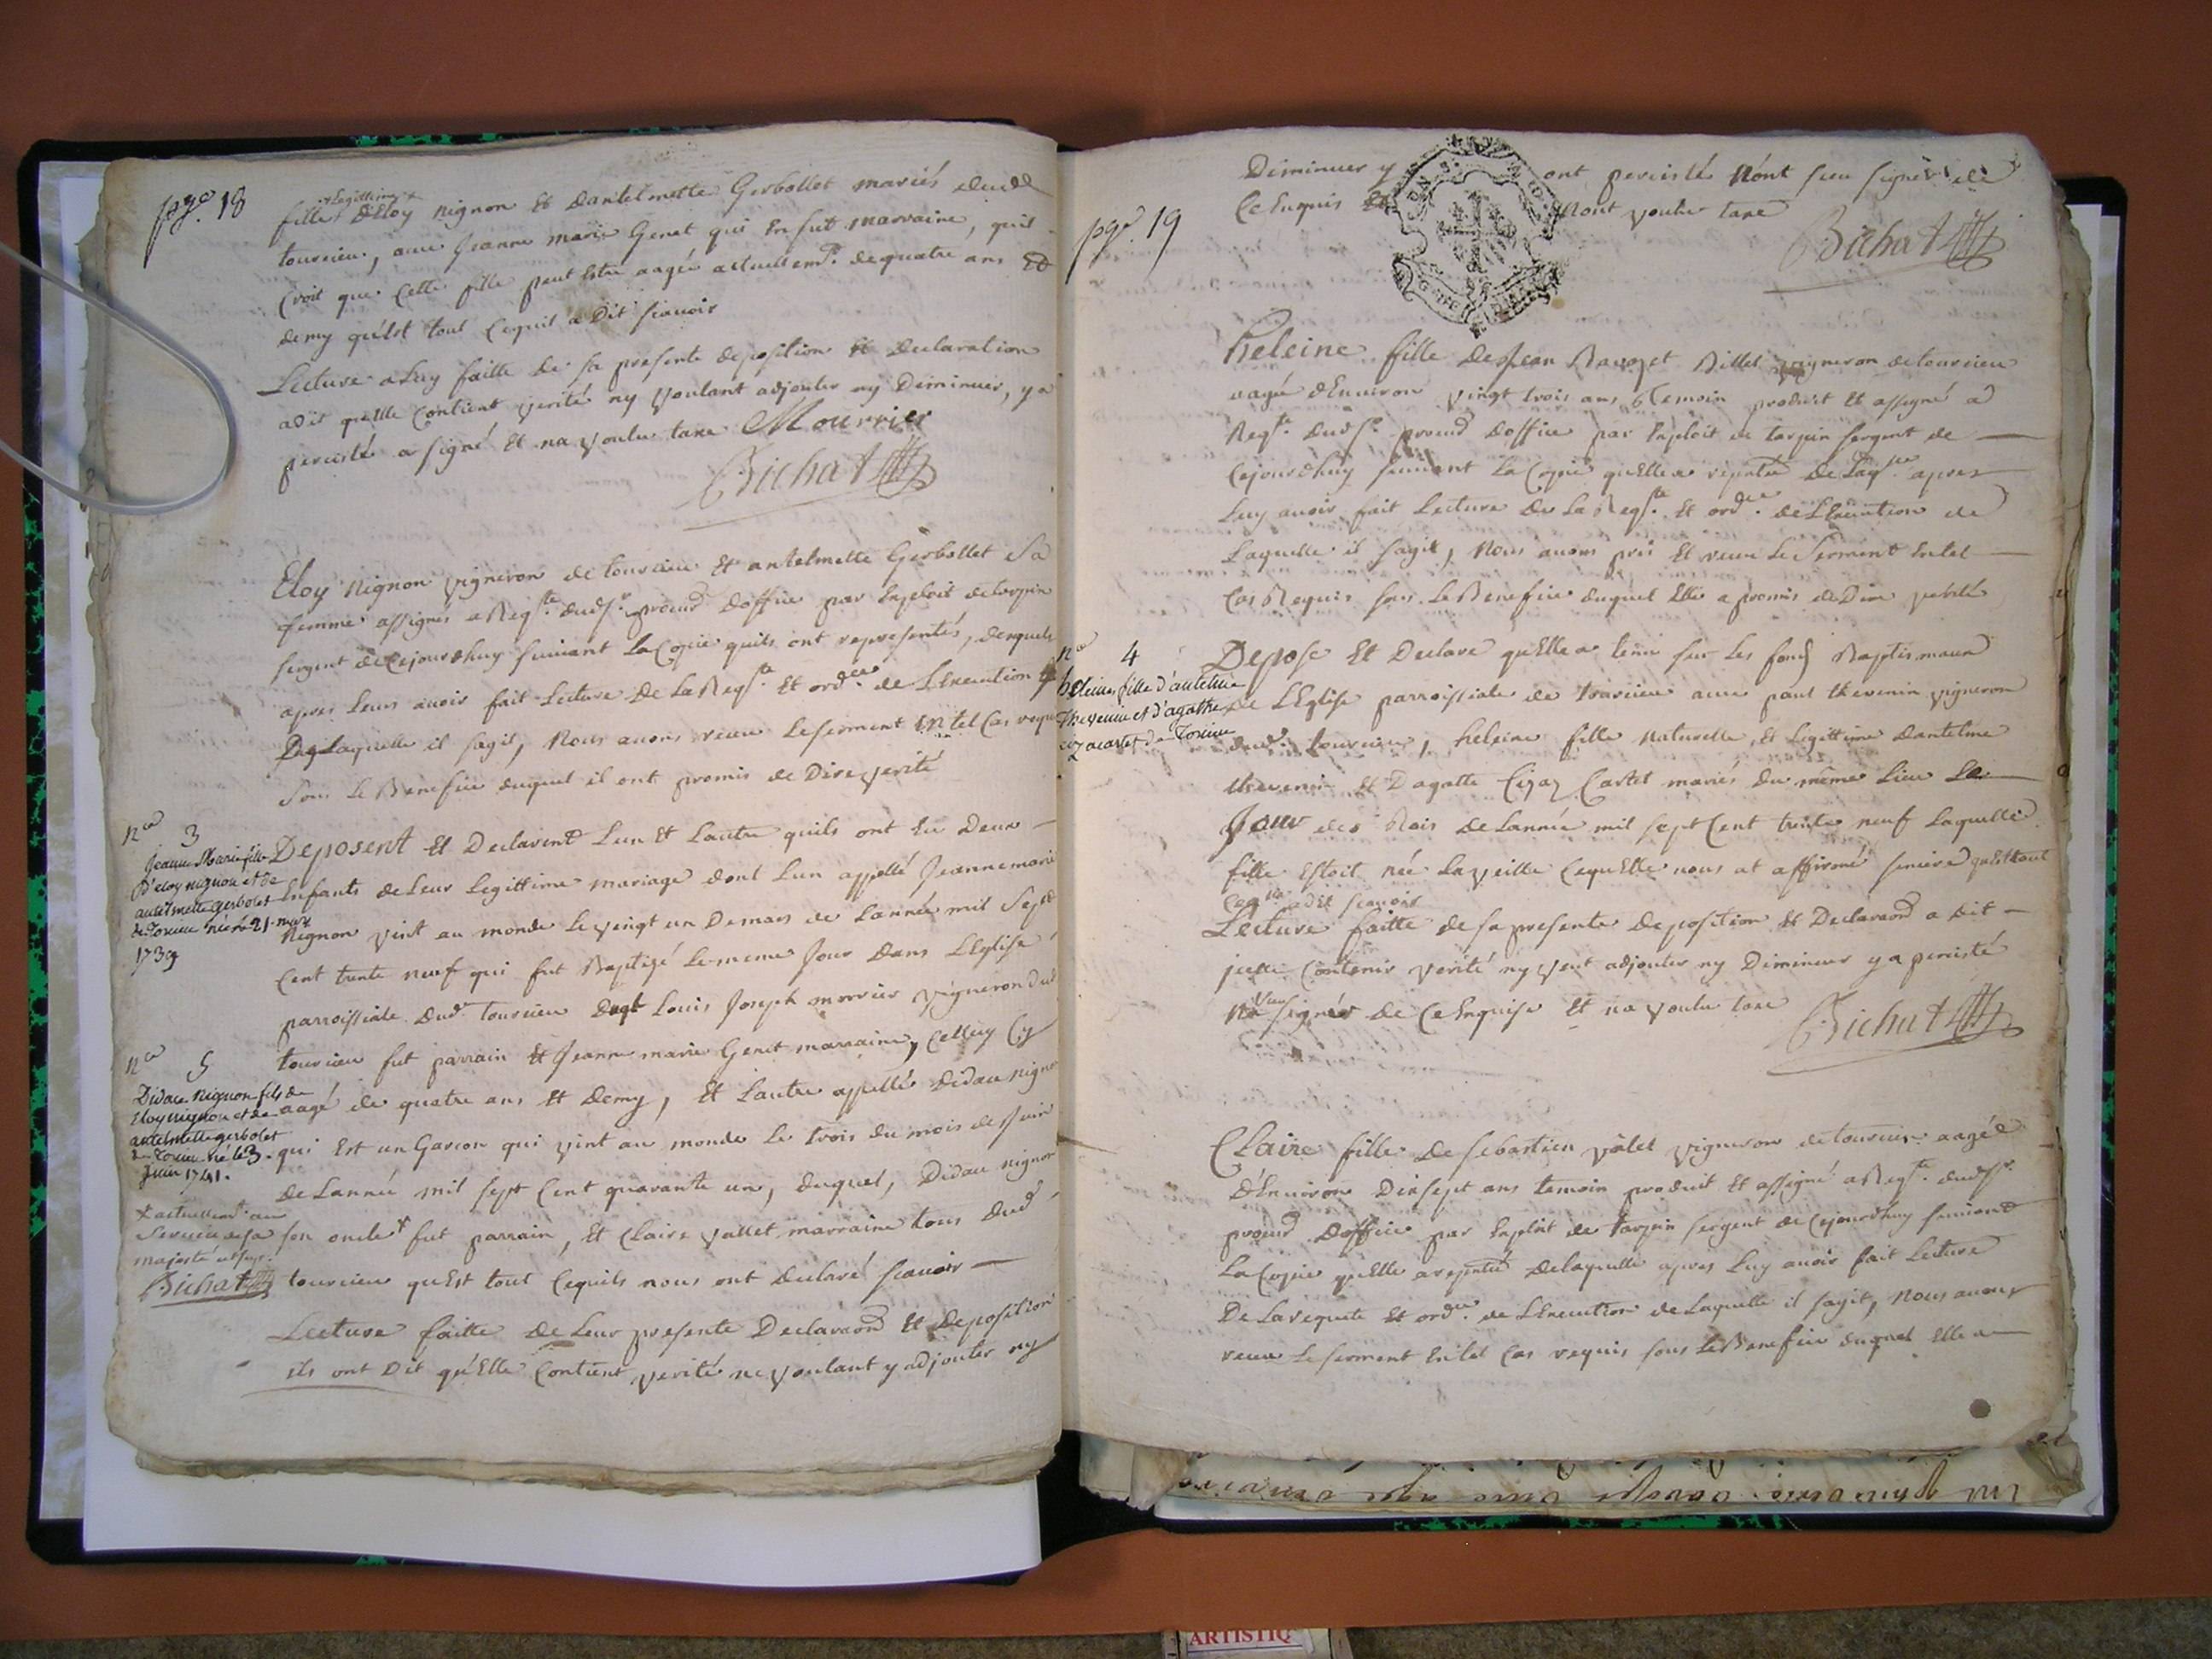 pge. 18
Legittime
fille d'Eloy Nignon et dantelmette Gerbollet mariés dud
tourcieu, avec Jeanne marie Genet qui En fut marraine, quil
Croit que Cette fille peut Estre aagée actuellemt. de quatre ans Et
demy qu'Est tout Cequil a Dit scavoir
Lecture a Luy faitte de sa presente deposition Et declaration
a dit quelle Contient verité ny voulant adjouter ny Diminuer, y a
percisté a signé Et na voulu taxe Mourrier
Bichat
Eloy Nignon vigneron de tourcieu Et antelmette Gerbollet Sa
femme assignés a Reqte. dudsr. procurd Doffice par Exploit de torpin
sergent de Cejourdhuy suivant La Copie quils ont representés, desquels
apres Leurs avoir fait Lecture de La Reqte. Et ordce. de LExecution
De Laquelle il sagit, Nous avons receu Le serment En tel Cas requis
Sous Le Benefice duquel il ont promis de Dire verité
nco 3
Jeanne Marie fille
d'eloy nignon et de
antelmette gerbolet
de Torcieu née le 21. mars
1739
Deposent Et Declarent Lun Et Lautre quils ont Eu Deux
Enfants de Leur Legittime mariage dont Lun appellé Jeanne marie
Nignon vint au monde Le vingt un De mars de Lannée mil Sept
Cent trente neuf qui fut Baptizé Le meme Jour Dans LEglise
parroissiale dud. tourcieu dont Louis Joseph morrier vigneron dud
tourcieu fut parrain Et Jeanne marie Genet marraine, Celluy Cy
nco 5
Didace Nignon fils de
Eloy nignon et de
antelmette gerbolet
de Torcieu né le 3.
Juin 1741.
aagé de quatre ans Et Demy, Et Lautre appellé Didace nignon
qui Est un Garcon qui vint au monde Le trois du mois de Juin
De Lannée mil sept Cent quarante un, duquel, Didace nignon
* actuellemt. au
Service de sa
majesté
Bichat
son oncle* fut parrain, Et Claire vallet marraine tous dud
tourcieu qu'Est tout Cequils nous ont declaré scavoir
Lecture faitte De Leur presente Declaraond Et Deposition
ils ont Dit qu'Elle Contient verité ne voulant y adjouter ny
pge. 19
Diminuer y ont percisté Nont sceu signer de
Ce Enquis Et Nont voulu taxe
Bichat
heleine fille de Jean Ravozet Billet vigneron de tourcieu
aagée dEnviron vingt trois ans Temoin produit Et assigné a
Reqte. dudsr. procurd Doffice par Exploit de torpin sergent de
Cejourdhuy suivant La Copie quElle a reputée de Laqlle apres
Luy avoir fait Lecture de La Reqte. Et ordce. de LExecution de
Laquelle il sagit, Nous avons pris Et receu Le Serment En tel
Cas Requis sous Le Benefice duquel Elle a promis de Dire verité
nco 4
heleine fille d'antelme
Thevenin et d'agathe
cizacartet de Torcieu
Depose Et Declare quElle a tenu sur Les fonds Baptismaux
de LEglise parroissiale de tourcieu avec paul thevenin vigneron
dud. tourcieu, heleine fille naturelle Et Legittime dantelme
thevenin Et Dagatte Cizaz Cartet mariés du même Lieu Le
Jour des Rois de Lannée mil sept Cent trente neuf Laquelle
fille Estoit née La veille CequElle nous at affirmé sincere quEst tout
Cequelle a dit scavoir
Lecture faitte de sa presente deposition Et Declaraond a dit
jcelle Contenir verité ny veut adjouter ny Diminuer y a percisté
Na sceu signer de Ce Enquise Et na voulu taxe
Bichat
Claire fille de sebastien valet vigneron de tourcieu aagée
dEnviron Dixsept ans temoin produit Et assigné a Reqte. dudsr.
procurd. Doffice par Exploit de torpin sergent de Cejourdhuy suivant
La Copie quElle a reputée de Laquelle apres Luy avoir fait Lecture
De La requete Et ordce. de LExecution de Laquelle il sagit, Nous avons
receu Le serment En tel Cas requis sous Le Benefice duquel Elle a
ARTISTIQ